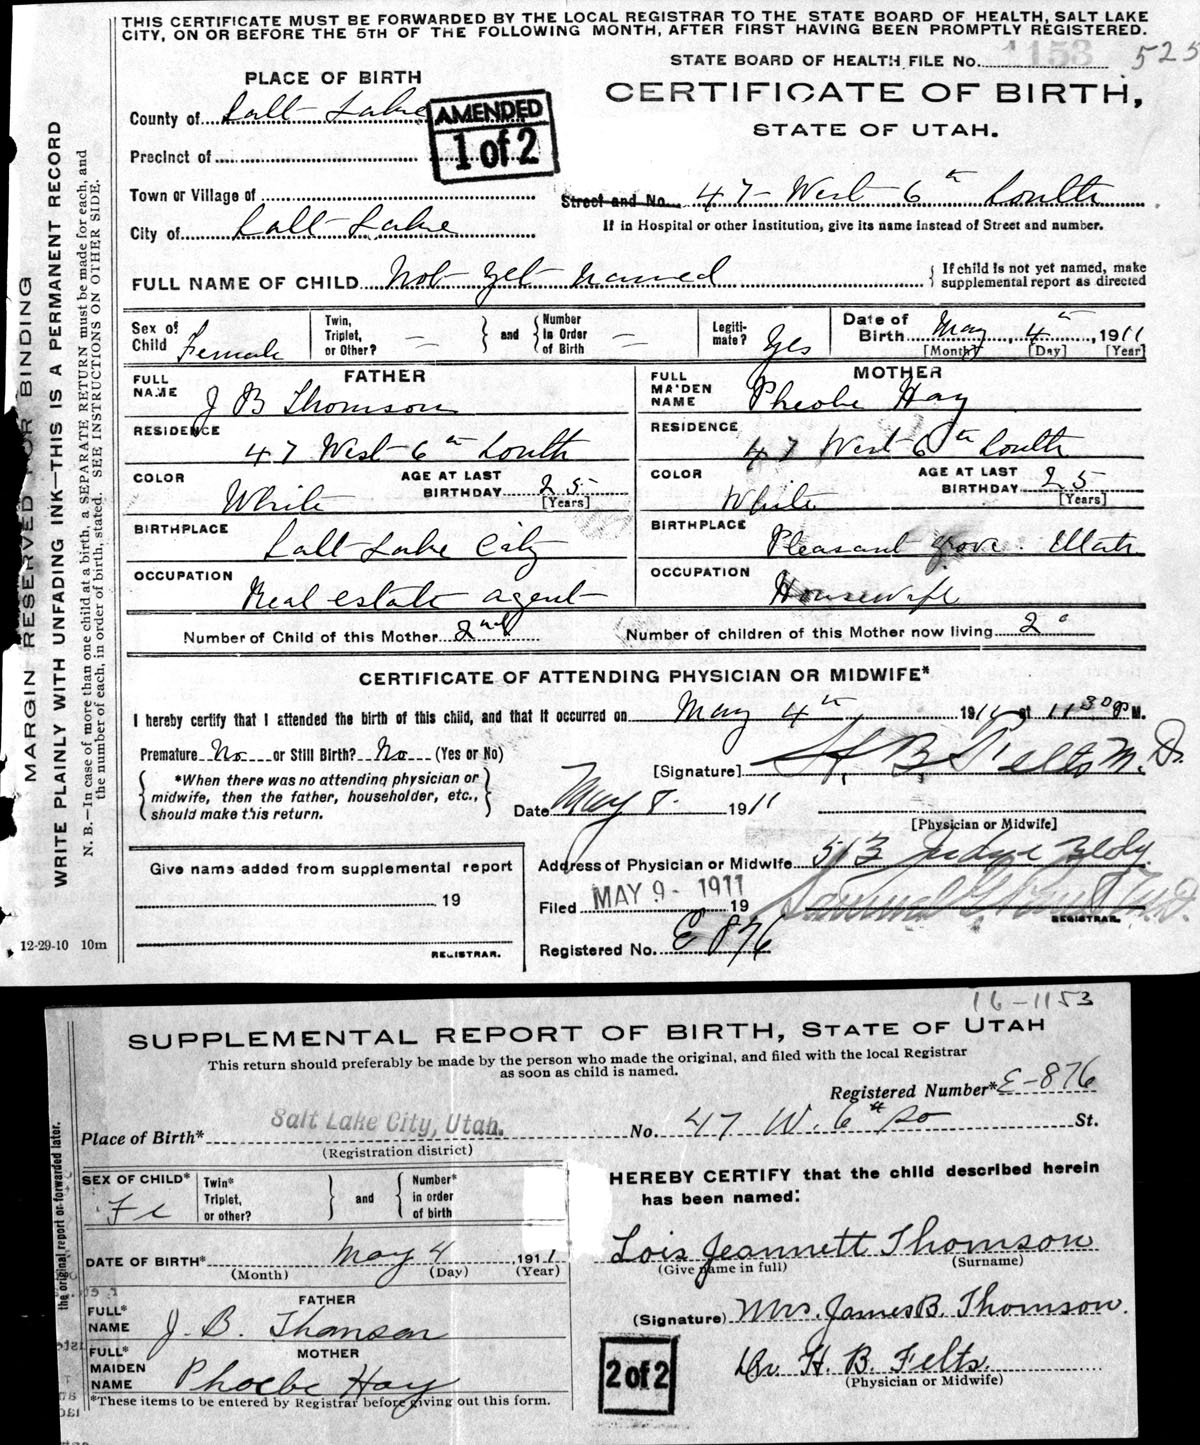 THIS CERTIFICATE MUST BE FORWARDED BY THE LOCAL REGISTRAR TO THE STATE BOARD OF HEALTH, SALT LAKE
CITY, ON OR BEFORE THE 5TH OF THE FOLLOWING MONTH, AFTER FIRST HAVING BEEN PROMPTLY REGISTERED.
STATE BOARD OF HEALTH FILE No. 1153 525
PLACE OF BIRTH
CERTIFICATE OF BIRTH,
STATE OF UTAH.
County of Salt Lake
AMENDED
1 of 2
Precinct of
Town or Village of
Street and No. 47 West 6th South
City of Salt Lake
If in Hospital or other Institution, give its name instead of Street and number.
FULL NAME OF CHILD Not yet named
If child is not yet named, make
supplemental report as directed
Sex of Child Female
Twin, Triplet, or Other? —
and
Number in Order of Birth —
Legitimate? Yes
Date of Birth May 4th, 1911
[Month] [Day] [Year]
FATHER
FULL NAME J B Thomson
RESIDENCE 47 West 6th South
COLOR White
AGE AT LAST BIRTHDAY 25 [Years]
BIRTHPLACE Salt Lake City
OCCUPATION Real estate agent
MOTHER
FULL MAIDEN NAME Pheobe Hay
RESIDENCE 47 West 6th South
COLOR White
AGE AT LAST BIRTHDAY 25 [Years]
BIRTHPLACE Pleasant grove Utah
OCCUPATION Housewife
Number of Child of this Mother 2nd
Number of children of this Mother now living 2
CERTIFICATE OF ATTENDING PHYSICIAN OR MIDWIFE*
I hereby certify that I attended the birth of this child, and that it occurred on May 4th, 1911 at 11 30 P M.
Premature No or Still Birth? No (Yes or No)
*When there was no attending physician or
midwife, then the father, householder, etc.,
should make this return.
[Signature] H. B. Felts M.D.
Date May 8. 1911
[Physician or Midwife]
Give name added from supplemental report
19
REGISTRAR.
Address of Physician or Midwife 513 Judge Bldg.
Filed MAY 9 - 1911 19
REGISTRAR.
Registered No. E 876
12-29-10 10m
MARGIN RESERVED FOR BINDING
WRITE PLAINLY WITH UNFADING INK—THIS IS A PERMANENT RECORD
N. B.—In case of more than one child at a birth, a SEPARATE RETURN must be made for each, and
the number of each, in order of birth, stated. SEE INSTRUCTIONS ON OTHER SIDE.
16-1153
SUPPLEMENTAL REPORT OF BIRTH, STATE OF UTAH
This return should preferably be made by the person who made the original, and filed with the local Registrar
as soon as child is named.
Registered Number* E-876
Place of Birth* Salt Lake City, Utah. No. 47 W. 6th So St.
(Registration district)
SEX OF CHILD* Fe
Twin* Triplet, or other?
and
Number* in order of birth
DATE OF BIRTH* May 4, 1911
(Month) (Day) (Year)
FATHER
FULL* NAME J. B. Thomson
MOTHER
FULL* MAIDEN NAME Phoebe Hay
*These items to be entered by Registrar before giving out this form.
HEREBY CERTIFY that the child described herein
has been named:
Lois Jeannett Thomson
(Give name in full) (Surname)
(Signature) Mrs. James B. Thomson.
Dr. H. B. Felts.
(Physician or Midwife)
2 of 2
the original report or forwarded later.